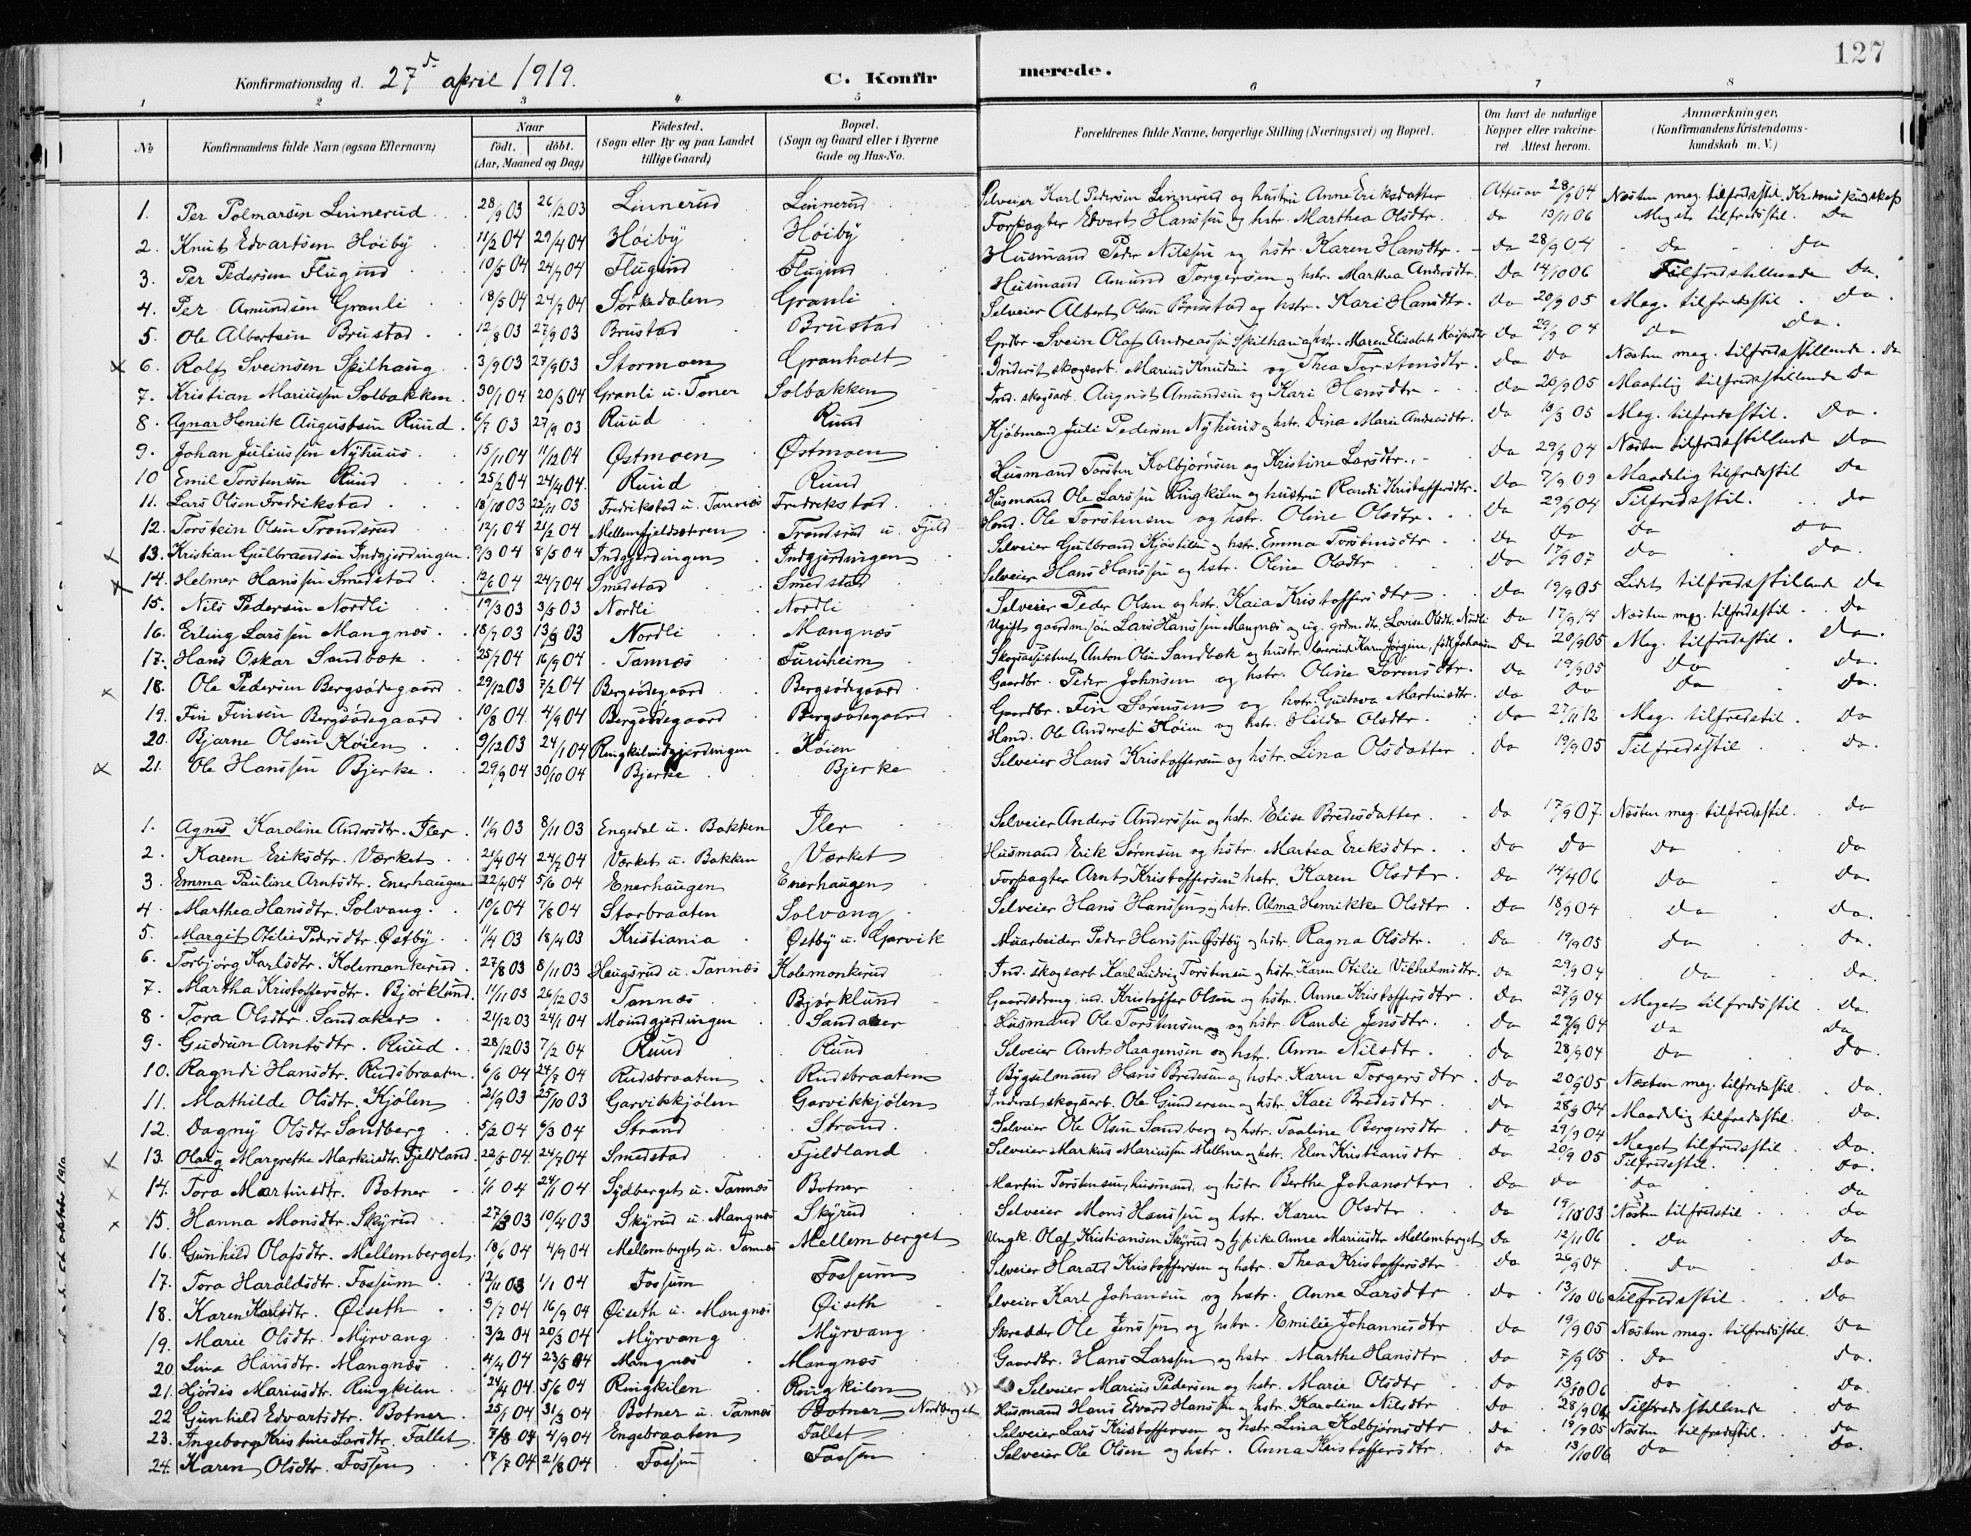 127
Konfirmationsdag d. 27d. april 1919. C. Konfirmerede.
1 2 3 4 5 6 7 8
No Konfirmandens fulde Navn (ogsaa Efternavn) Naar født. døbt. (Aar, Maaned og Dag) Fødested. (Sogn eller By og paa Landet tillige Gaard) Bopæl. (Sogn og Gaard eller i Byerne Gade og Hus-No. Forældrenes fulde Navne, borgerlige Stilling (Næringsvei) og Bopæl. Om havt de naturlige Kopper eller vakcineret Attest herom. Anmærkninger. (Konfirmandens Kristendomskundskab m. V.)
1. Per Polmarsen Linnerud 28/9 03 26/12 03 Linnerud Linnerud Selveier Karl Pedersen Linnerud og hustru Anne Eriksdatter 28/9 04 Næsten meg. tilfredsstil. Kristendomskundskap
2. Knut Edvartsen Høiby 11/2 04 29/4 04 Høiby Høiby Forpagter Edvart Hanssen og hstr. Marthea Olsdtr. Do 13/11 06 Meget tilfredsstil. Do
3. Per Pedersen Flugind 10/5 04 24/7 04 Flugind Flugind Husmand Peder Nilssen og hstr. Karen Hansdtr. Do 28/9 04 Do Do
4. Per Amundsen Granli 18/5 04 24/7 04 Tørkedalen Granli Husmand Amund Torgersen og hstr. Marthea Andersdtr. Do 14/10 06 Tilfredstillende Do.
5. Ole Albertsen Brustad 12/8 03 27/9 03 Brustad Brustad Selveier Albert Olsen Brustad og hstr. Kari Hansdtr. Do 20/9 05 Meg. tilfredsstil. Do.
x 6. Rolf Sveinsen Spilhaug 3/9 03 27/9 03 Stormoen Granholt Grdbr. Svein Olaf Andreassen Spilhaug hstr. Maren Elisabeth Do 29/9 04 Do Do.
7. Kristian Mariussen Solbakken 30/1 04 20/3 04 Granli u. Toner Solbakken skogsarb. Marius Knudsen og Thea Torstensdtr. Do Do Næsten meg. tilfredsstillende. Do
8. Agnar Henrik Augustsen Ruud 6/7 03 27/9 03 Ruud Ruud Ind. skogsarb. August Amundsen og Kari Hansdtr Do 20/9 05 Maatelig tilfredsstillende Do
9. Johan Juliussen Nyhuus 15/11 04 11/12 04 Østmoen Østmoen Kjøbmand Juli Pedersen Nyhuus og hstr. Dina Marie Andreasdtr Do 13/3 05 Meg. tilfredsstil. Do.
10 Emil Torstensen Ruud 25/2 04 24/4 04 Ruud Ruud Husmand Torsten Kolbjørnsen og Kristine Larsdtr. Do 29/9 04 Næsten tilfredsstillende Do
11. Lars Olsen Fredrikstad 18/10 03 22/11 03 Fredrikstad u. Tannæs Fredrekstad Husmand Ole Larssen Ringkilen og hustru Randi Kristoffersdtr. Do 7/9 09 Maadelig tilfredsstil Do
12. Torstein Olsen Trondsrud 12/1 04 21/2 04 Mellemfjeldsætren Trondsrud u. Fjeld Hmd. Ole Torstensen og hstr. Oline Olsdtr. Do 29/9 04 Tilfredsstil. Do
x 13. Kristian Gulbrandsen Indgjerdingen 9/3 04 8/5 04 Indgjerdingen Indgjerdingen Selveier Gulbrand Kjøstilsen og hstr. Emma Torstensdtr Do Do Do Do
x 14. Helmer Hanssen Smedstad 12/6 04 24/7 04 Smedstad Smedstad Selveier Hans Hanssen og hstr. Oline Olsdtr Do 17/9 07 Do Do.
15. Nils Pedersen Nordli 19/3 03 3/5 03 Nordli Nordli Selveier Peder Olsen og hstr. Kaia Kristoffersdtr Do 19/9 05 Lidet tilfredsstillende Do
16. Erling Larssen Mangnæs 18/7 03 13/9 03 Nordli Mangnæs Ugift gaardm.søn Lars Hanssen Mangnæs og ug. grdm.dtr. Lovise Olsdtr. Nordli Do 17/9 14 Næsten meg. tilfredsstil. Do
17. Hans Oskar Sandbæk 25/7 04 16/9 04 Tannæs Furuheim Skogsassistent Anton Olsen Sandbæk og hustr. Karen Jørgine, født Johansen Do 20/9 05 Meg. tilfredsstil. Do
x 18. Ole Pedersen Bergsødegaard 29/12 03 7/2 04 Bergsødegaard Bergsødegaard Gaardbr. Peder Johnsen og hstr. Oline Do 19/9 05 Do Do.
19. Fin Finsen Bergsødegaard 10/8 04 4/9 04 Bergsødegaard Bergsødegaard Gaardbr. Fin Sørensen og hstr. Gustava Martinsdtr. Do Do Do Do.
20. Bjarne Olsen Køien 9/12 03 24/1 04 Køien Hmd. Ole Andersen Køien og hstr. Hilda Olsdtr. Do 27/11 12 Meg. tilfredstil. Do
x 21. Ole Hanssen Bjerke 29/9 04 30/10 04 Bjerke Bjerke Selveier Hans Kristoffersen og hstr. Lina Olsdatter Do 19/9 05 Tilfredsstil Do.
1. Agnes Karoline Andersdtr. Iler 11/9 03 8/11 03 Engedal u. Bakken Iler Selveier Anders Anderssen og hstr. Elise Bredesdatter. Do 17/9 07. Næsten meg. tilfredsstil. Do
2. Karen Eriksdtr. Værket 21/4 04 24/7 04 Værket u. Bakken Værket Husmand Erik Sørensen og hstr. Martea Eriksdtr. Do Do Do Do
3. Emma Pauline Arntsdtr. Enerhaugen 22/4 04 5/6 04 Enerhaugen Enerhaugen Forpagter Arnt Kristoffersen hstr. Karen Olsdtr. Do 14/4 06 Do Do.
4. Marthea Hansdtr. Solvang. 10/6 04 7/8 04 Storbraaten Solvang Selveier Hans Hanssen og hstr. Alma Henrikke Olsdtr Do 18/9 04 Do Do.
5. Margit Otilie Pedersdtr. Østby 11/4 03 18/4 03 Kristiania Østby u. Garvik Muarbeider Peder Hanssen Østby og hstr. Ragna Olsdtr. Do 19/9 05 Do Do.
6. Torbjørg Karlsdtr. Kolemonkerud 27/8 03 8/11 03 Haugsrud u. Tannæs Kolemonkerud Ind. skogsarb Karl Ludvig Torstensen og hstr. Karen Otilie Vilhelmsdtr. Do 29/9 04 Do Do.
7. Martha Kristoffersdtr. Bjørklund. 11/11 03 26/12 03 Tannæs Bjørklund Kristoffer Olsen og hstr. Anne Kristoffersdtr Do 27/9 04 Meget tilfredsstil Do.
8. Tora Olsdtr. Sandaker 21/12 03 24/1 04 Moindgjerdingen Sandaker Husmand Ole Torstensen og hstr. Randi Jensdtr. Do 27/9 04 Do Do
9. Gudrun Arntsdtr. Ruud 28/12 03 7/2 04 Ruud Ruud Selveier Arnt Haagensen og hstr. Anne Nilsdtr. Do 28/9 04 Do Do.
10. Ragndi Hansdtr. Rudsbraaten 6/6 04 24/7 04 Rudsbraaten Rudsbraaten Bygselmand Hans Bredesen og hstr. Karen Torgersdtr. Do 20/9 05 Næsten meg. tilfredsstil. Do.
11. Mathilde Olsdtr. Kjølen 21/9 03 25/10 03 Garvikkjølen Garvikkjølen skogsarb. Ole Gundersen og hstr. Kari Bredesdtr. Do 28/9 04 Maadelig tilfredsstil. Do.
12. Dagny Olsdtr Sandberg 5/2 04 6/3 04 Strand Strand Selveier Ole Olsen Sandberg og hstr. Paaline Bergersdtr. Do 29/9 04 Meget tilfredsstil Do.
x 13. Olaug Margrethe Markusdtr. Fjeldland 22/5 04 24/7 04 Smedstad Fjeldland Selveier Markus Mariussen Mellem og hstr. Elen Kristiansdtr Do 20/9 05 Tilfredsstil. Do.
x 14. Tora Martinsdtr. Botner 1/1 04 24/1 04 Sydberget u. Tannæs Botner Martin Torstensen, husmand, og hstr Berthe Johansdtr Do Do Do Do
x 15. Hanna Monsdtr. Skyrud 27/3 03 10/4 03 Skyrud u. Mangnæs Skyrud Selveier Mons Hanssen og hstr. Karen Olsdtr. Do 19/10 03 Næsten tilfredstil Do
16. Gunhild Olafsdtr. Mellemberget 18/6 04 4/9 04 Mellemberget u. Tannæs Mellemberget Ungk. Olaf Kristiansen Skyrud og pike Anne Mariusdtr Mellemberget Do 12/11 06 Do Do
17. Tora Haraldsdtr. Fossum 12/11 03 1/1 04 Fossum Fossum Selveier Harald Kristoffersen og hstr. Thea Kristoffersdtr Do 26/9 04 Do Do
18. Karen Karlsdtr. Øiseth 9/7 04 16/9 04 Øiseth u. Mangnæs Øiseth Selveier Karl Johansen og hstr. Anne Larsdtr Do 13/10 06 Tilfredsstil Do
19. Marie Olsdtr. Myrvang 3/2 04 20/3 04 Myrvang Myrvang Skredder Ole Jenssen og hstr. Emilie Johannesdtr Do 19/9 05 Næsten meg. tilfredsstil. Do
20 Lina Hansdtr. Mangnæs 4/4 04 23/5 04 Mangnæs Mangnæs Gaardbr. Hans Larssen og hstr. Marthe Hansdtr Do 7/9 05 Do Do.
21. Hjørdis Mariusdtr. Ringkilen 24/4 04 5/6 04 Ringkilen Ringkilen Selveier Marius Pedersen og hstr. Marie Olsdtr Do 13/10 06 Do Do
22 Gunhild Edvartsdtr. Botner 25/1 04 31/3 04 Botner u. Tannæs Botner Nordberget Husmand Hans Edvard Hanssen og hstr. Karoline Nilsdtr Do 28/9 04 Tilfredsstillende Do.
23. Ingeborg Kristine Larsdtr. Fallet 7/8 04 4/9 04 Engebraaten Fallet Selveier Lars Kristoffersen og hstr. Lina Kolbjørnsdtr Do 19/9 05 Næsten tilfredsstil. Do
24. Karen Olsdtr. Fossen 17/7 04 21/8 04 Fossen Fossen Selveier Ole Olsen og hstr. Anna Kristoffersdtr. Do 13/10 06 Do Do.